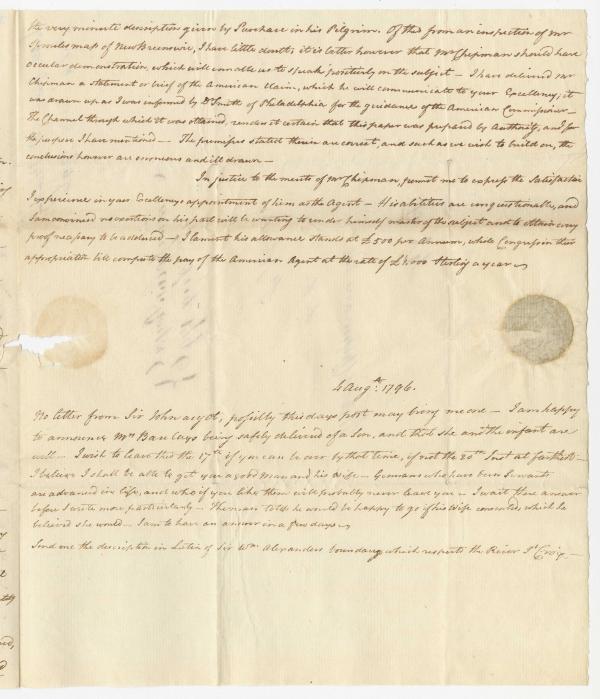 the very minute description given by Purchase in his Pilgrim. Of this from an inspection of Mr
Sproules map of New Brunswic, I have little doubt; it is better however that Mr Chipman should have
occular demonstration, which will ennable us to speak positively on the subject – I have delivered Mr
Chipman a statement or brief of the American Claim, which he will communicate to your Excellency; it
was drawn up as I was informed by Dr Smith of Philadelphia for the guidance of the American Commissioner –
The Channel through which it was obtained, renders it certain that this paper was prepared by Authority, and for
the purpose I have mentioned – The premises stated therein are correct, and such as we wish to build on, the
conclusions however are erroneous and ill drawn –
In justice to the merits of Mr Chipman, permit me to express the Satisfaction
I experience in your Excellencys appointment of him as the Agent – His abilities are unquestionable, and
I am convinced no exertions on his part will be wanting to render himself master of the subject and to obtain every
proof necessary to be adduced – I lament his allowance stands at £500 per Annum, while Congress in their
appropriation bill compute the pay of the American Agent at the rate of £1.000 Sterling a year
4 Augst. 1796.
No letter from Sir John as yet, possibly this days post may bring me one – I am happy
to announce Mrs Barclays being safely delivered of a Son, and that she and the infant are
well – I wish to leave this the 17th if you can be over by that time, if not the 20th Inst at farthest –
I believe I shall be able to get you a good man and his wife – Germans who have been Servants
are advanced in life, and who if you like them will probably never leave you – I wait there answer
before I write more particularly – The man told he would be happy to go if his Wife consented which he
believed she would – I am to have an answer in a few days
Send me the description in Latin of Sir Wm Alexanders boundary which respects the River St Croix –